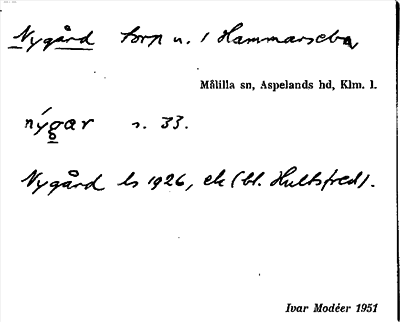 Nygård torp u. 1 Hammarsebo,
Målilla sn, Aspelands hd, Klm. l.
nýgar s. 33.
Nygård ls 1926, ek (bl. Hultsfred).
Ivar Modéer 1951